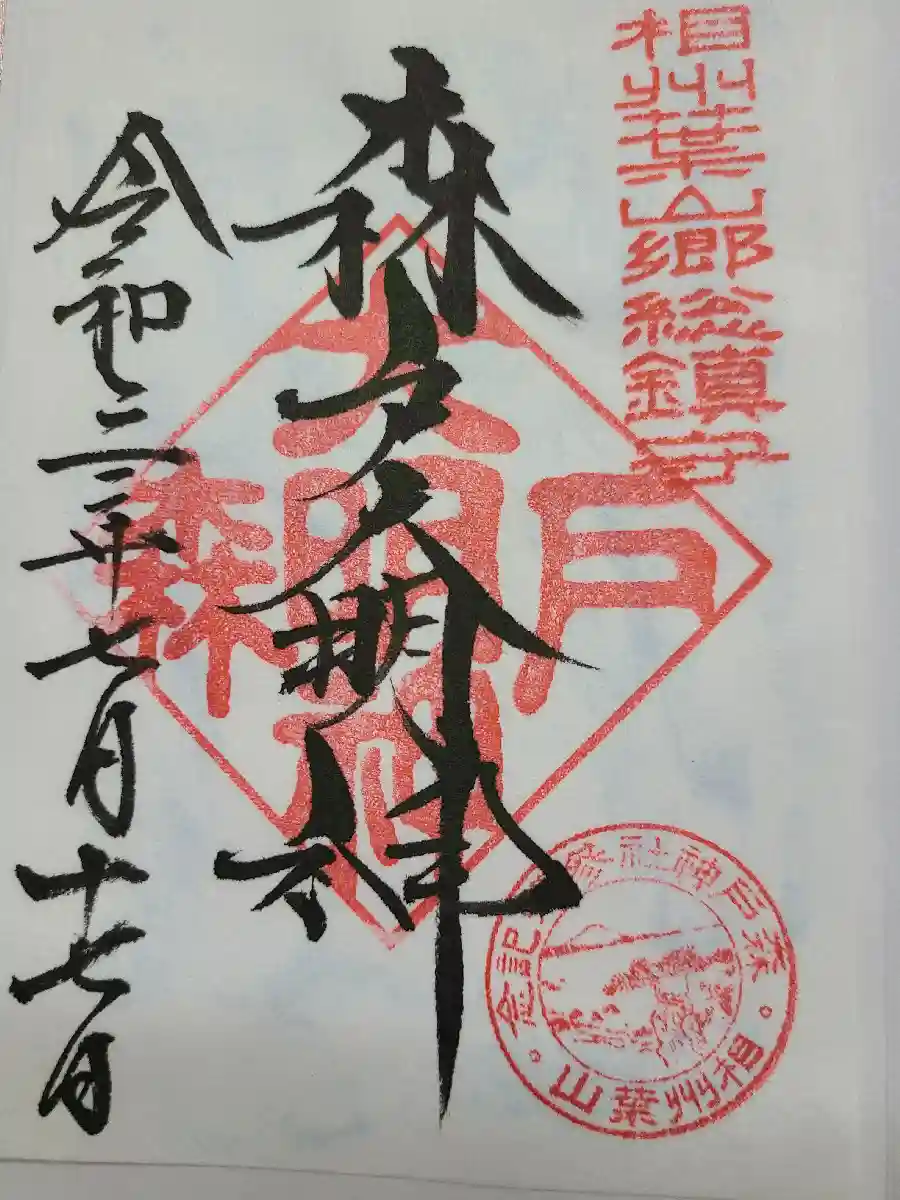 相州葉山郷総鎮守
森戸大明神
令和三年七月十七日
森戸大明神
森戸神社参詣記念
相州葉山